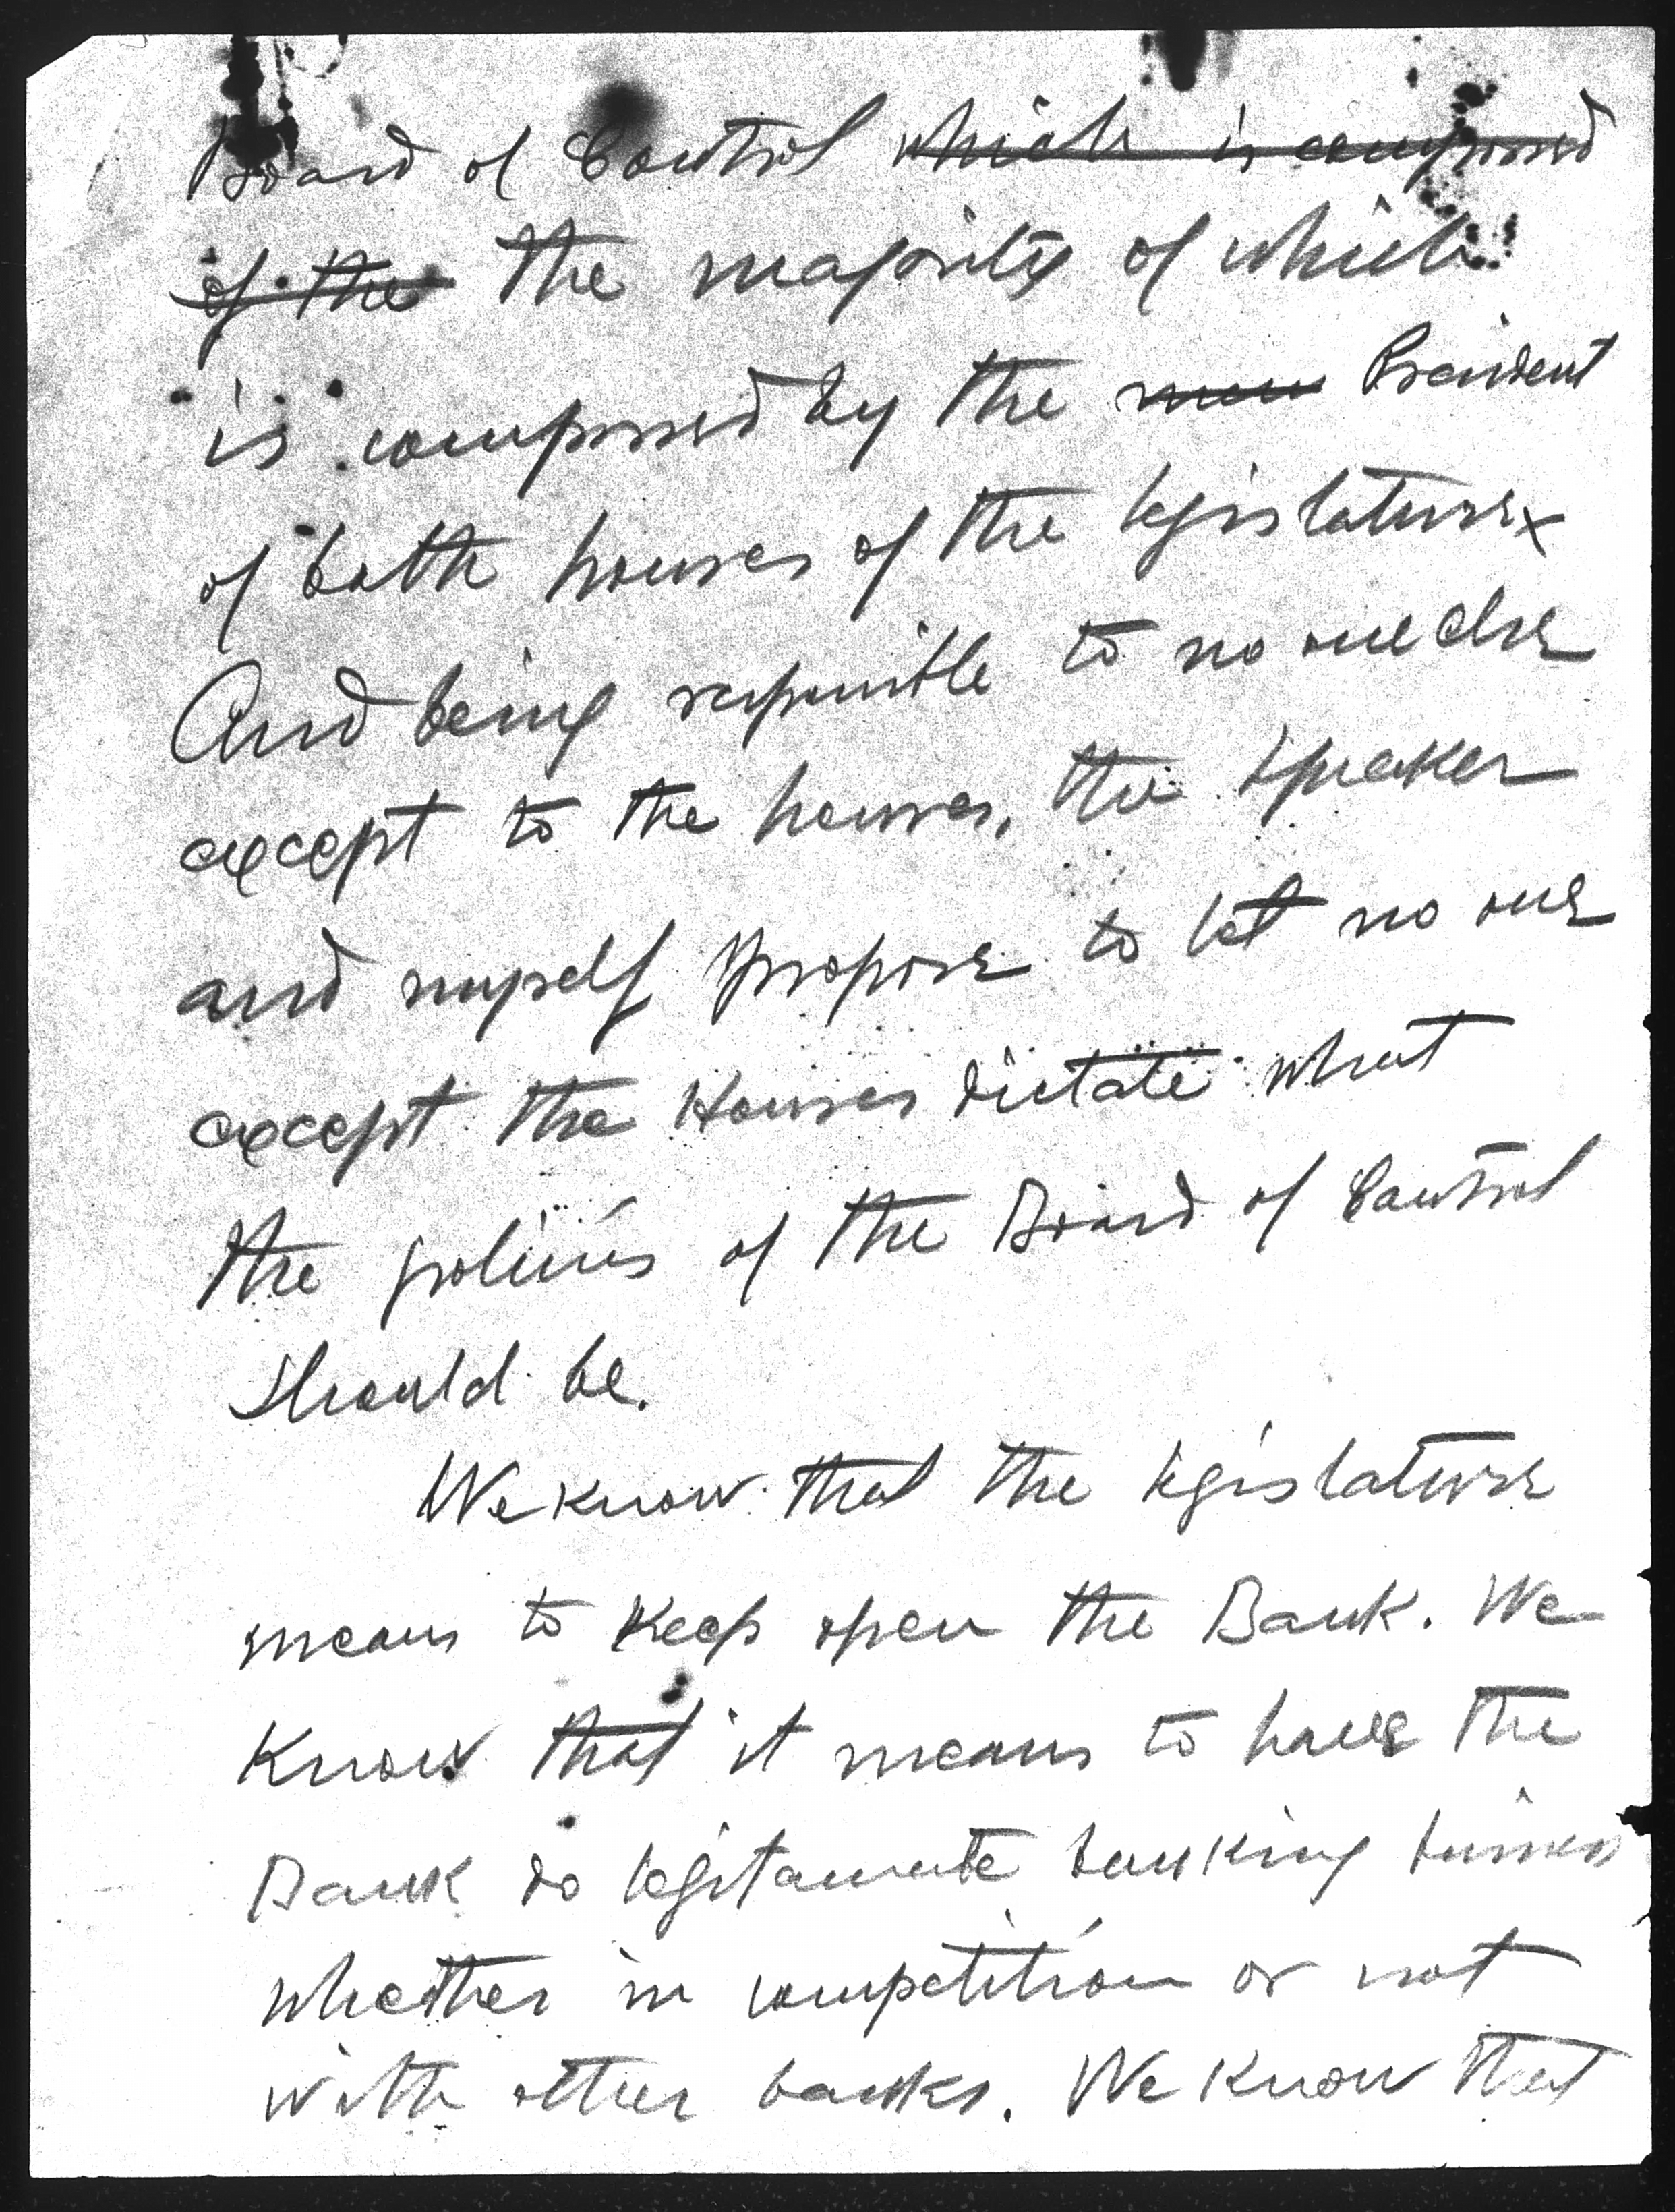 Board of Control which is composed
of the the majority of which
is composed by the President
of both houses of the legislature
And being responsible to no one else
except to the houses, the Speaker
and myself propose to let no one
except the Houses dictate what
the policies of the Board of Control
should be.
We know that the legislature
means to keep open the Bank. We
know that it means to have the
Bank do legitamate banking business
whether in competition or not
with other banks. We know that